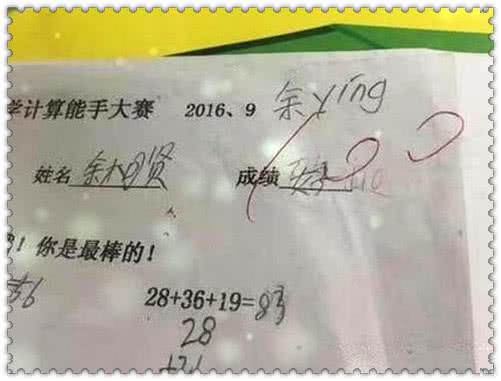 学计算能手大赛 2016、9 余ying
姓名 余 贤 成绩 100
！你是最棒的！
56 28+36+19=83
28
+36